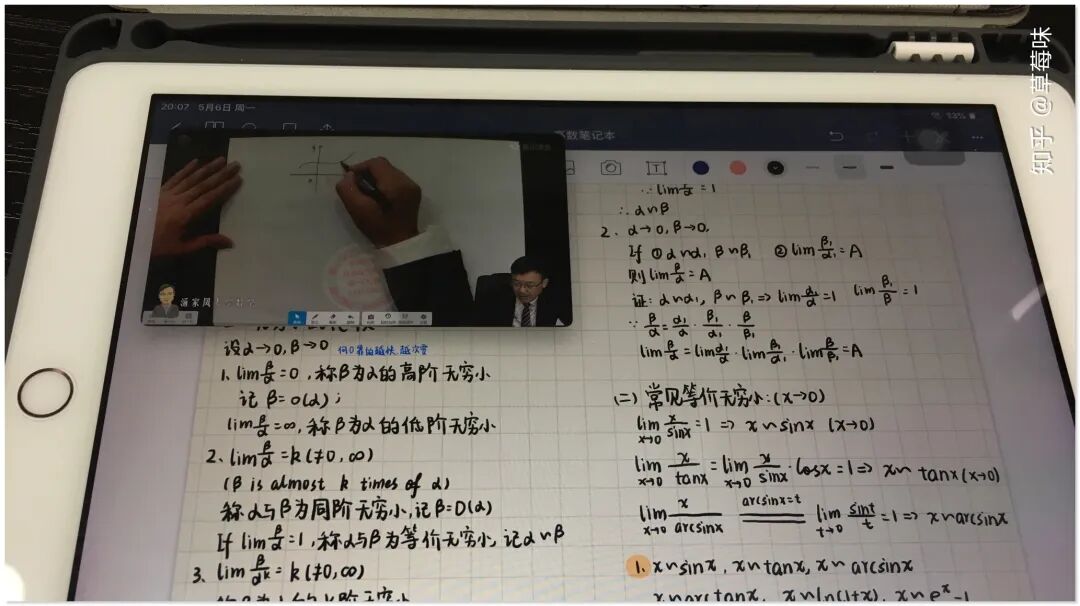 20:07 5月6日 周一
93%
高数笔记本
知乎 @草莓味
设α→0, β→0
1. lim β/α = 0, 称β为α的高阶无穷小
记 β=o(α);
lim β/α = ∞, 称β为α的低阶无穷小
2. lim β/α = k (≠0, ∞)
(β is almost k times of α)
称α与β为同阶无穷小, 记β=O(α)
If lim β/α = 1, 称α与β为等价无穷小, 记α~β
3. lim β/α^k = k (≠0, ∞)
∵ lim β/α = 1
∴ α~β
2. α→0, β→0,
If ① α~α₁, β~β₁ ② lim β₁/α₁ = A
则 lim β/α = A
证: α~α₁, β~β₁ => lim α₁/α = 1 lim β₁/β = 1
∵ β/α = α₁/α · β₁/α₁ · β/β₁
lim β/α = lim α₁/α · lim β₁/α₁ · lim β/β₁ = A
(二) 常见等价无穷小: (x→0)
lim x→0 x/sinx = 1 => x~sinx (x→0)
lim x→0 x/tanx = lim x→0 x/sinx · cosx = 1 => x~tanx (x→0)
lim x→0 x/arcsinx arcsinx=t lim t→0 sint/t = 1 => x~arcsinx
1. x~sinx, x~tanx, x~arcsinx
x~arctanx, x~ln(1+x), x~eˣ-1